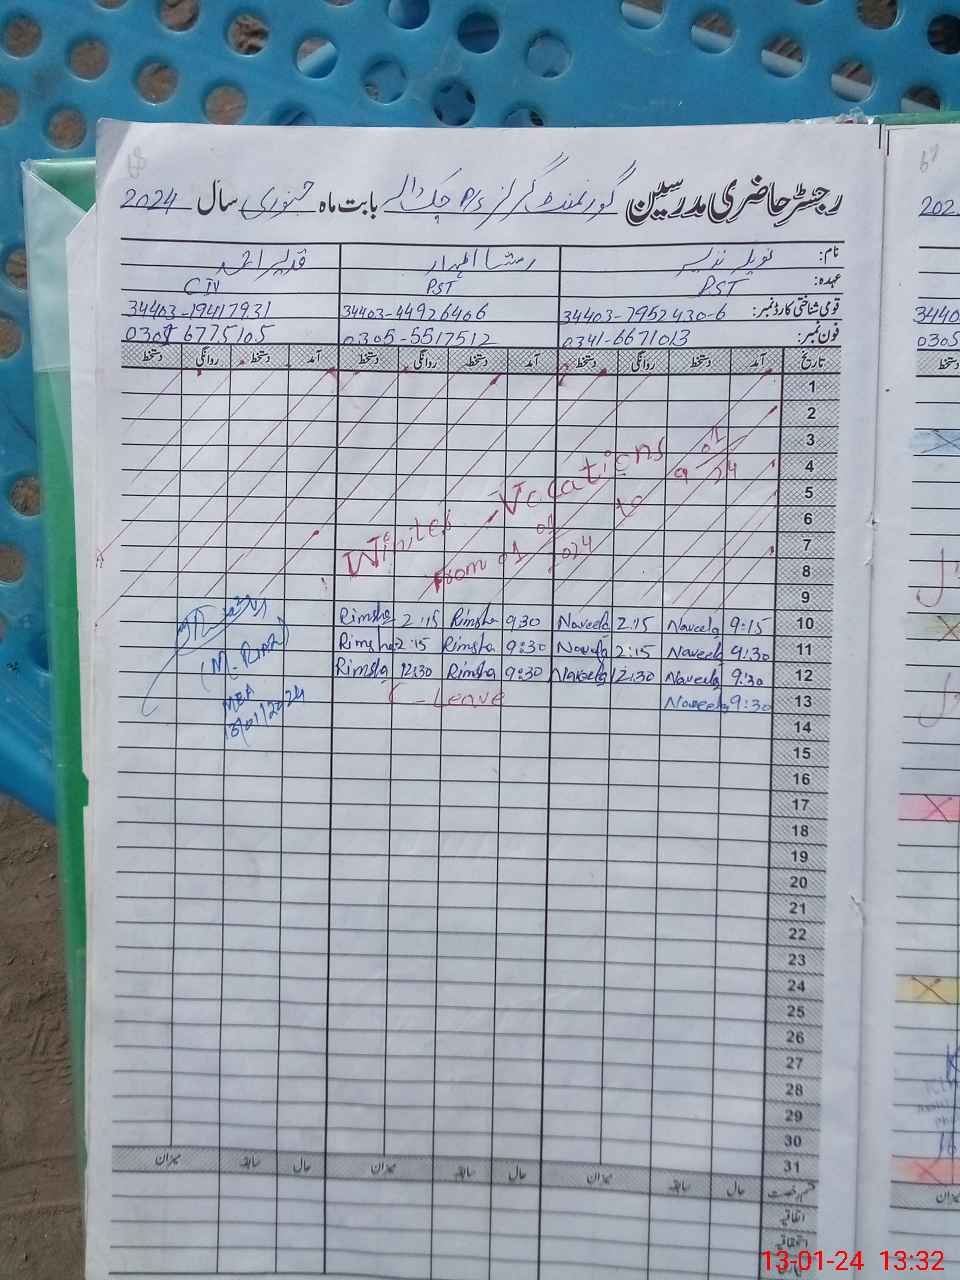 68
رجسٹر حاضری مدرسین گورنمنٹ گرلز P/S چک دالر بابت ماہ جنوری سال 2024
نام: نویلہ نذیر رمشا اظہار قدیر احمد
عہدہ: PST PST CIV
قومی شناختی کارڈ نمبر: 34403-7952430-6 34403-44926406 34403-19417931
فون نمبر: 0341-6671013 0305-5517512 6775105
تاریخ آمد دستخط روانگی دستخط آمد دستخط روانگی دستخط آمد دستخط روانگی دستخط
1
2
3
4
5
6
7
8
9
Winter Vocations
From 01 01 024 to 9 01 24
10 9:15 Naveela 2:15 Naveela 9:30 Rimsha 2:15 Rimsha
11 9:30 Naveela 2:15 Naveela 9:30 Rimsha 2:15 Rimsha
12 9:30 Naveela 12:30 Naveela 9:30 Rimsha 12:30 Rimsha
13 9:30 Naveela C-Leave
(M. Riaz)
MEA
13/01/2024
14
15
16
17
18
19
20
21
22
23
24
25
26
27
28
29
30
31
حال سابقہ میزان حال سابقہ میزان حال سابقہ میزان
اتفاقیہ
استحقاقیہ
67
202
3440
0305
دستخط
میزان
13-01-24 13:32